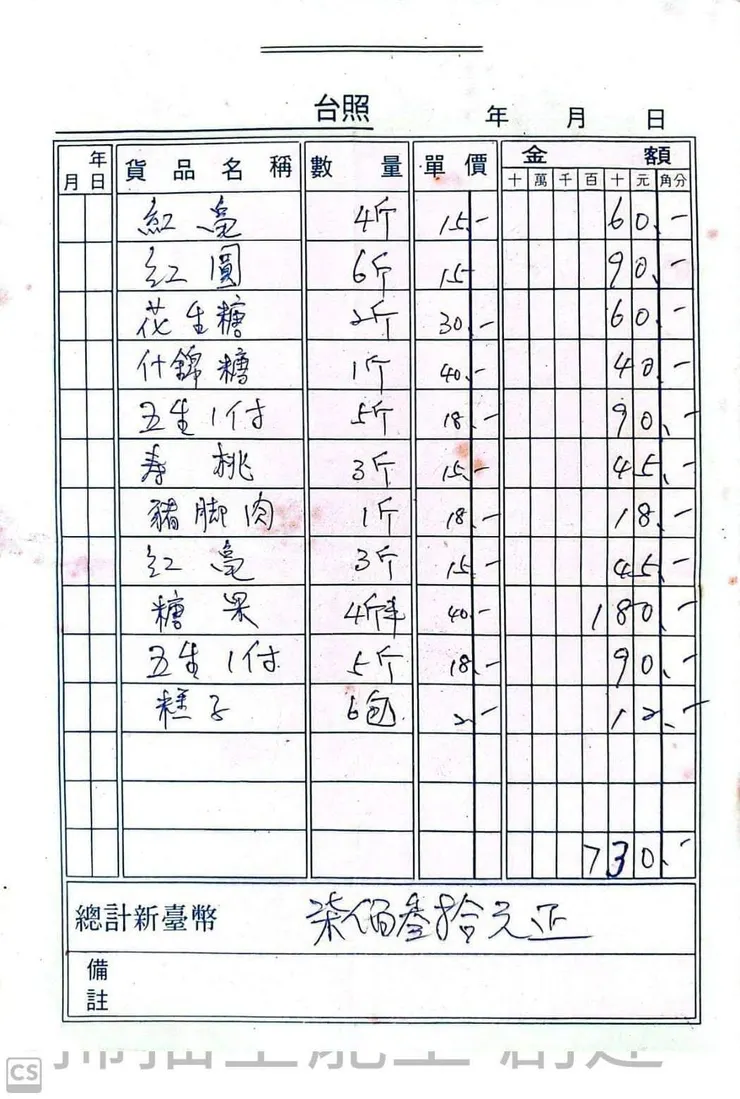 台照 年 月 日
年 月 日 貨品名稱 數量 單價 金額
十 萬 千 百 十 元 角分
紅龜 4斤 15.- 60.-
紅圓 6斤 15 90.-
花生糖 2斤 30.- 60.-
什錦糖 1斤 40.- 40.-
五生1付 5斤 18.- 90.-
寿桃 3斤 15.- 45.-
豬脚肉 1斤 18.- 18.-
紅龜 3斤 15.- 45.-
糖果 4斤半 40.- 180.-
五生1付 5斤 18.- 90.-
粽子 6包 2.- 12.-
730.-
總計新臺幣 柒佰叁拾元正
備註
CS